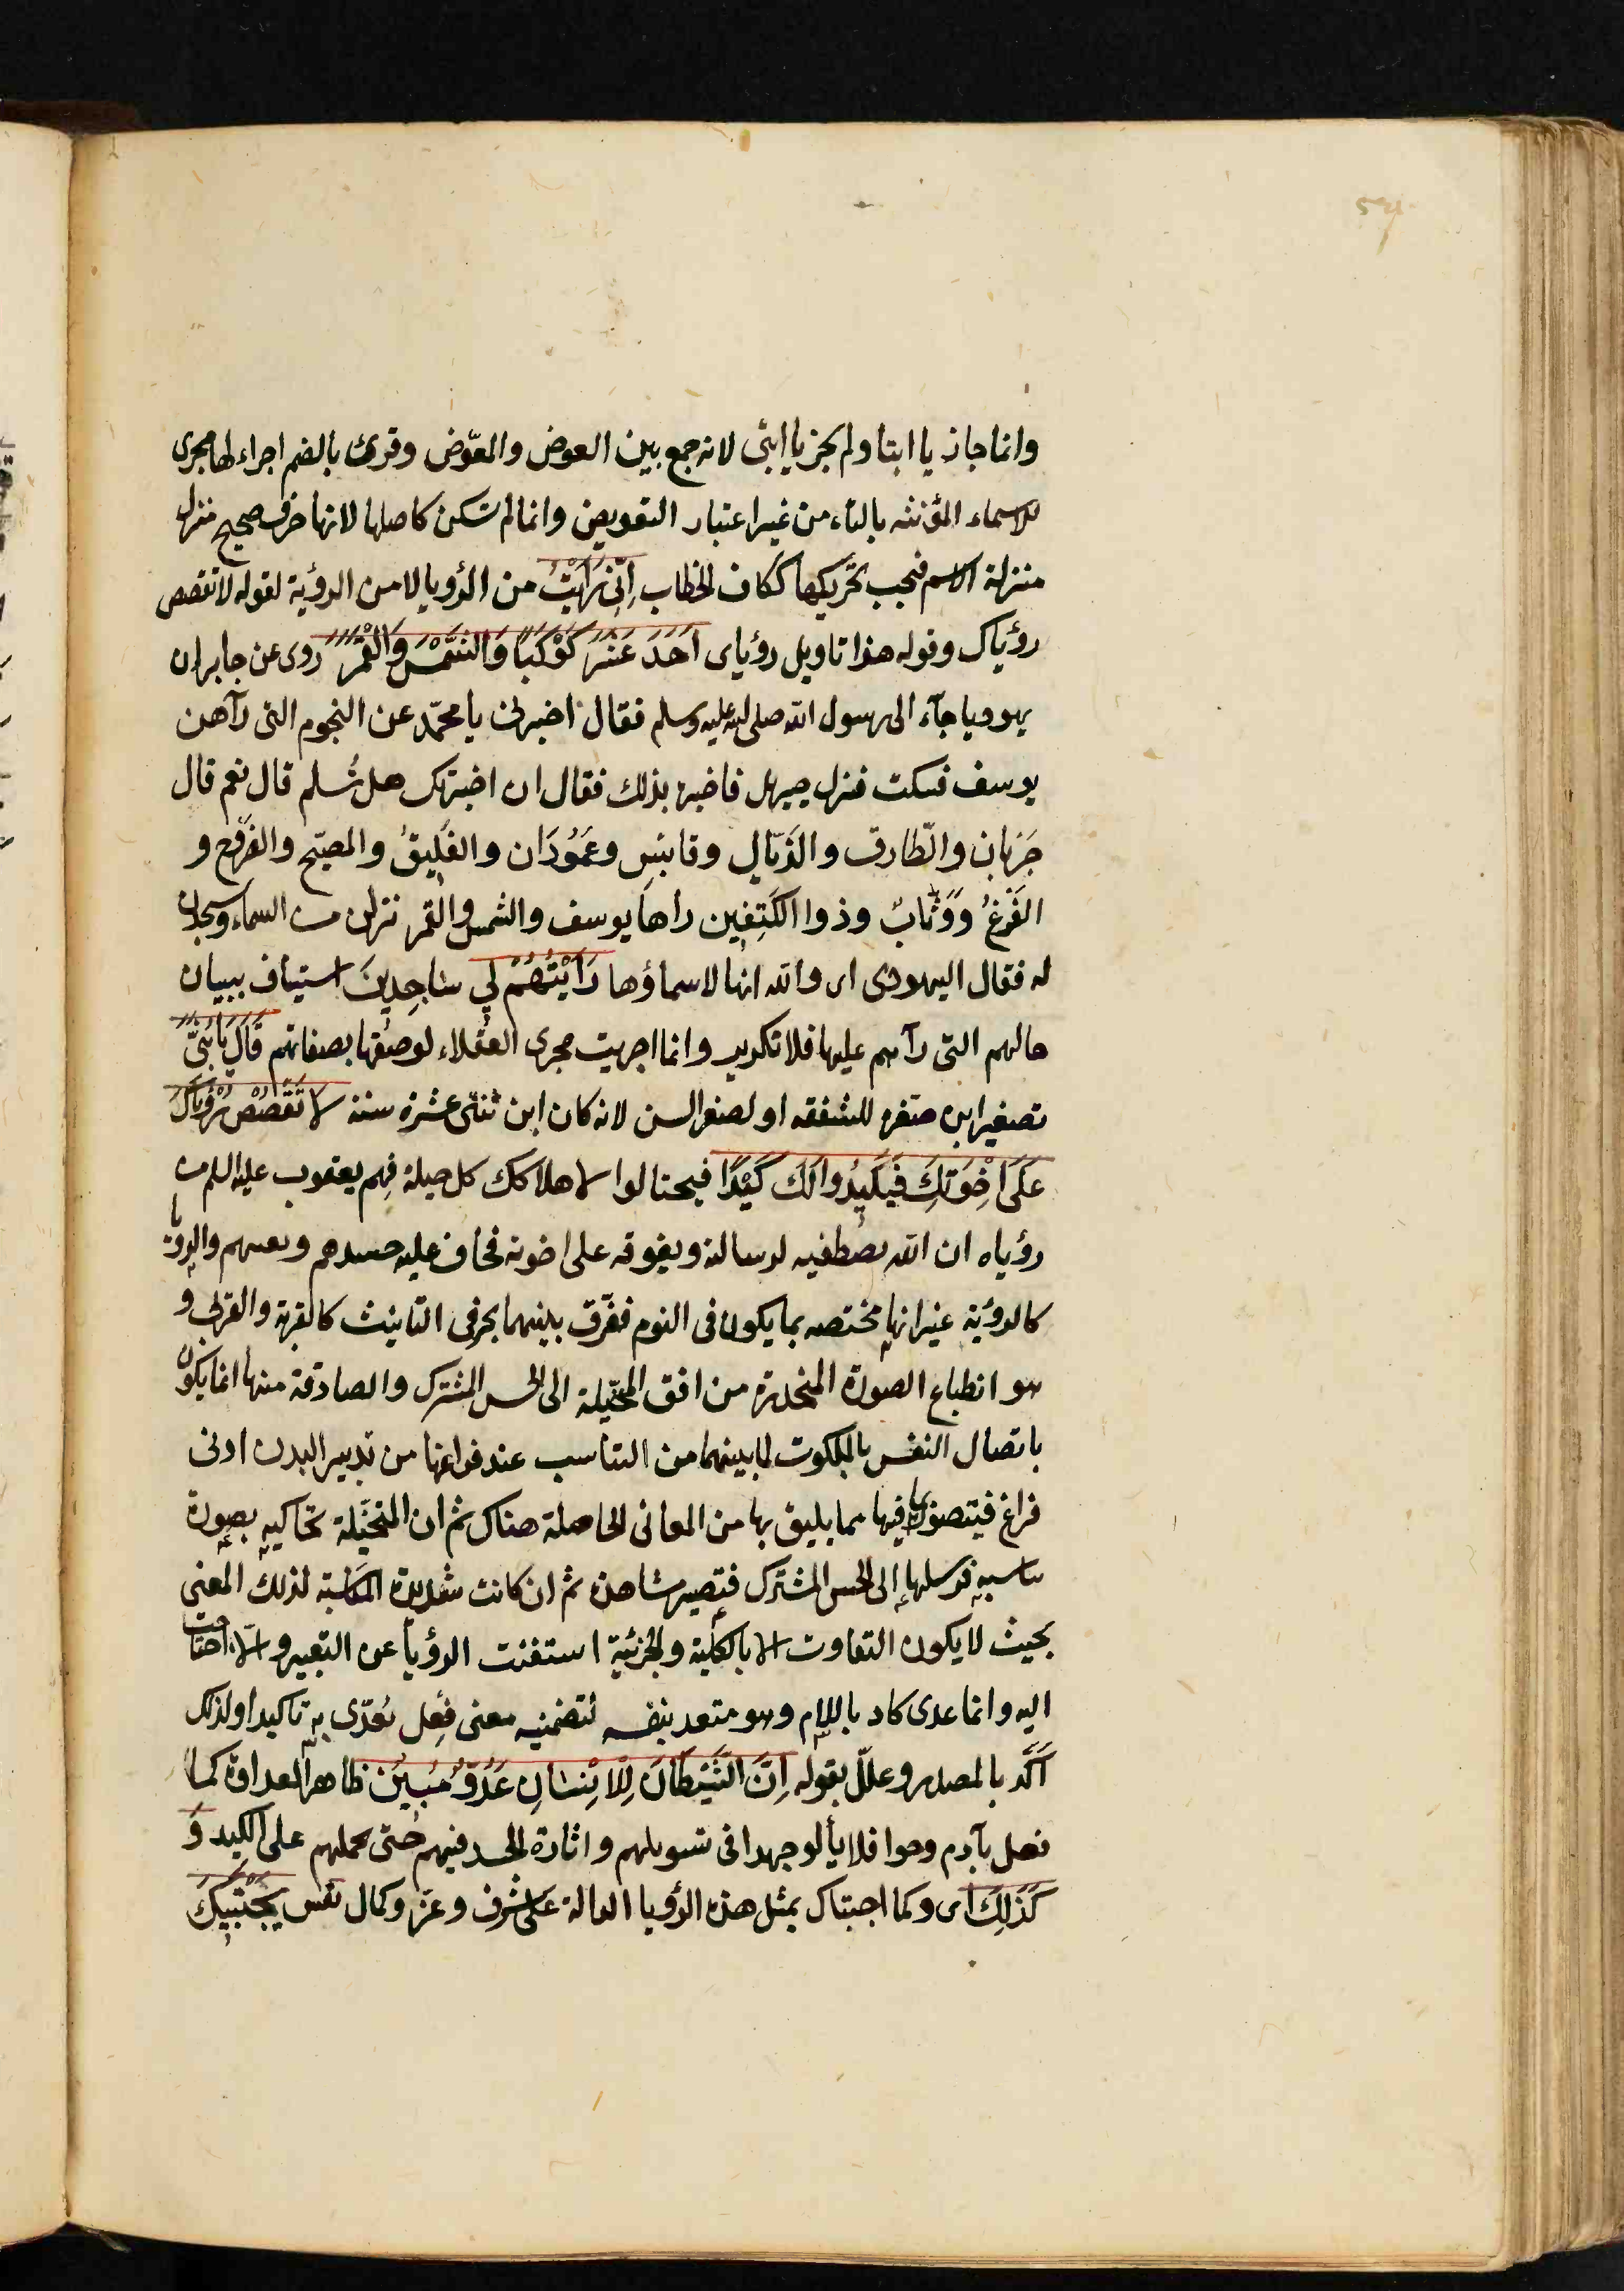 وانما جاز يا ابتا ولم يجز يا ابتى لانه جمع بين العوض والمعّوض وقرئ بالضم اجراء لها مجرى
للاسماء المؤنثه بالتاء من غير اعتبار التعويض وانما لم تسكن كاصلها لانها حرف صحيح منزل
منزلة الاسم فيجب تحريكها ككاف الخطاب اِنِّى رَاَيْتُ من الرؤيا لا من الرؤية لقوله لا تقصص
رؤياك وقوله هذا تاويل رؤياى اَحَدَ عَشَرَ كَوْكَبًا وَالشَّمْسَ وَالْقَمَرَ روى عن جابر ان
يهوديا جآء الى رسول الله صلى الله عليه وسلم فقال اخبرنى يا محمّد عن النجوم التى رآهن
يوسف فسكت فنزل جبريل فاخبره بذلك فقال ان اخبرتك هل تُسلم قال نعم قال
جَرَبان والطّارق والذَيّال وقابِس وعَمُودَان والفَليِقُ والمصبّح والضَرُوح و
الفَرْغُ وَوَثّابٌ وذوا الكَتِفين رأها يوسف والشمس والقمر نزلن من السماء وسجدن
له فقال اليهودى اى والله انها لاسماؤها رَاَيْتُهُمْ لِي سَاجِدِينَ استيناف ببيان
حالهم التى رآهم عليها فلا تكرير وانما اجريت مجرى العقلاء لوصفها بصفاتهم قَالَ يَا بُنَىَّ
تصغير ابن صغره للشفقه او لصغر السن لانه كان ابن ثنتى عشرة سنة لَا تَقْصُصْ رُؤْيَاكَ
عَلَى اِخْوَتِكَ فَيَكِيدُوا لَكَ كَيْدًا فيحتالوا لاهلاكك كل حيلة فهم يعقوب عليه السلام من
رؤياه ان الله يصطفيه لرسالته ويفوقه على اخوته فخاف عليه حسدهم وبغيهم والرؤيا
كالرؤية غير انها مختصه بما يكون فى النوم ففرّق بينهما بحرفى التانيث كالقربة والقربى و
هو انطباع الصورة المنحدرة من افق المتخيّلة الى الحس المشترك والصادقة منها انما يكون
باتصال النفس بالملكوت لما بينهما من التناسب عند فراغها من تدبير البدن ادنى
فراغ فيتصور بما فيها مما يليق بها من المعانى الحاصلة هناك ثم ان المتخيّلة تحاكيه بصورة
تناسبه فترسلها الى الحس المشترك فتصير مشاهدة ثم ان كانت شديدة المناسبة لذلك المعنى
بحيث لا يكون التفاوت الا بالكلية والجزئية استغنت الرؤيا عن التعبير والا احتاجت
اليه وانما عدى كاد باللام وهو متعد بنفسه لتضمنه معنى فِعل يُعدّى به تاكيدا ولذلك
اَكّد بالمصدر وعلّل بقوله اِنَّ الشَّيْطَانَ لِلْاِنْسَانِ عَدُوٌّ مُبِينٌ ظاهر العداوة كما
فعل بآدم وحوا فلا يألو جهدا فى تسويلهم واثارة الحسد فيهم حتى يحملهم على الكيد وَ
كَذَلِكَ اى وكما اجتباك بمثل هذه الرؤيا الدالة على شرف وعز وكمال نفس يَجْتَبِيكَ